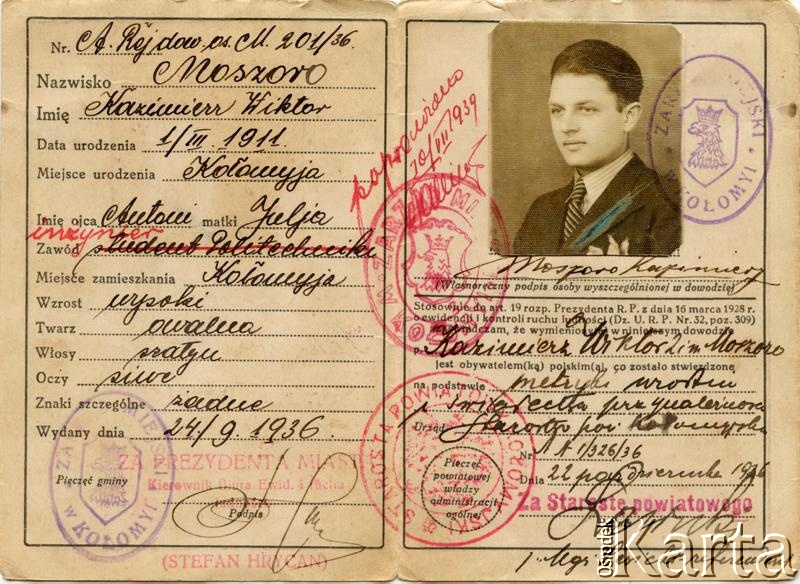 Nr. A. Rejdow. os. M. 201/36.
Nazwisko Moszoro
Imię Kazimierz Wiktor
Data urodzenia 1/III 1911.
Miejsce urodzenia Kołomyja
Imię ojca Antoni matki Julja
inżynier
Zawód student Politechniki
Miejsce zamieszkania Kołomyja
Wzrost wysoki
Twarz owalna
Włosy szatyn
Oczy siwe
Znaki szczególne żadne
Wydany dnia 24/9 1936.
ZA PREZYDENTA MIASTA
Kierownik Biura Ewid. i Ruchu
Pieczęć gminy
Podpis
(STEFAN HRYCAN)
W KOŁOMYI
poprawiono
10/III 1939
ZARZĄD MIEJSKI
W KOŁOMYI
Moszoro Kazimierz
(Własnoręczny podpis osoby wyszczególnionej w dowodzie)
Stosownie do art. 19 rozp. Prezydenta R. P. z dnia 16 marca 1928 r.
o ewidencji i kontroli ruchu ludności (Dz. U. R. P. Nr. 32, poz. 309)
poświadczam, że wymieniony w niniejszym dowodzie
p. Kazimierz Wiktor 2 im Moszoro
jest obywatelem(ką) polskim(ą), co zostało stwierdzone
na podstawie metryki urodzin
i świadectwa przynależności
Urząd Starostwo pow. Kołomyjskie
Nr. A 1/326/36
dnia 22 października 1936
Za Starostę powiatowego
STAROSTA POWIATOWY KOŁOMYJSKI
Pieczęć
powiatowej
władzy
administracji
ogólnej
Ośrodek
Karta